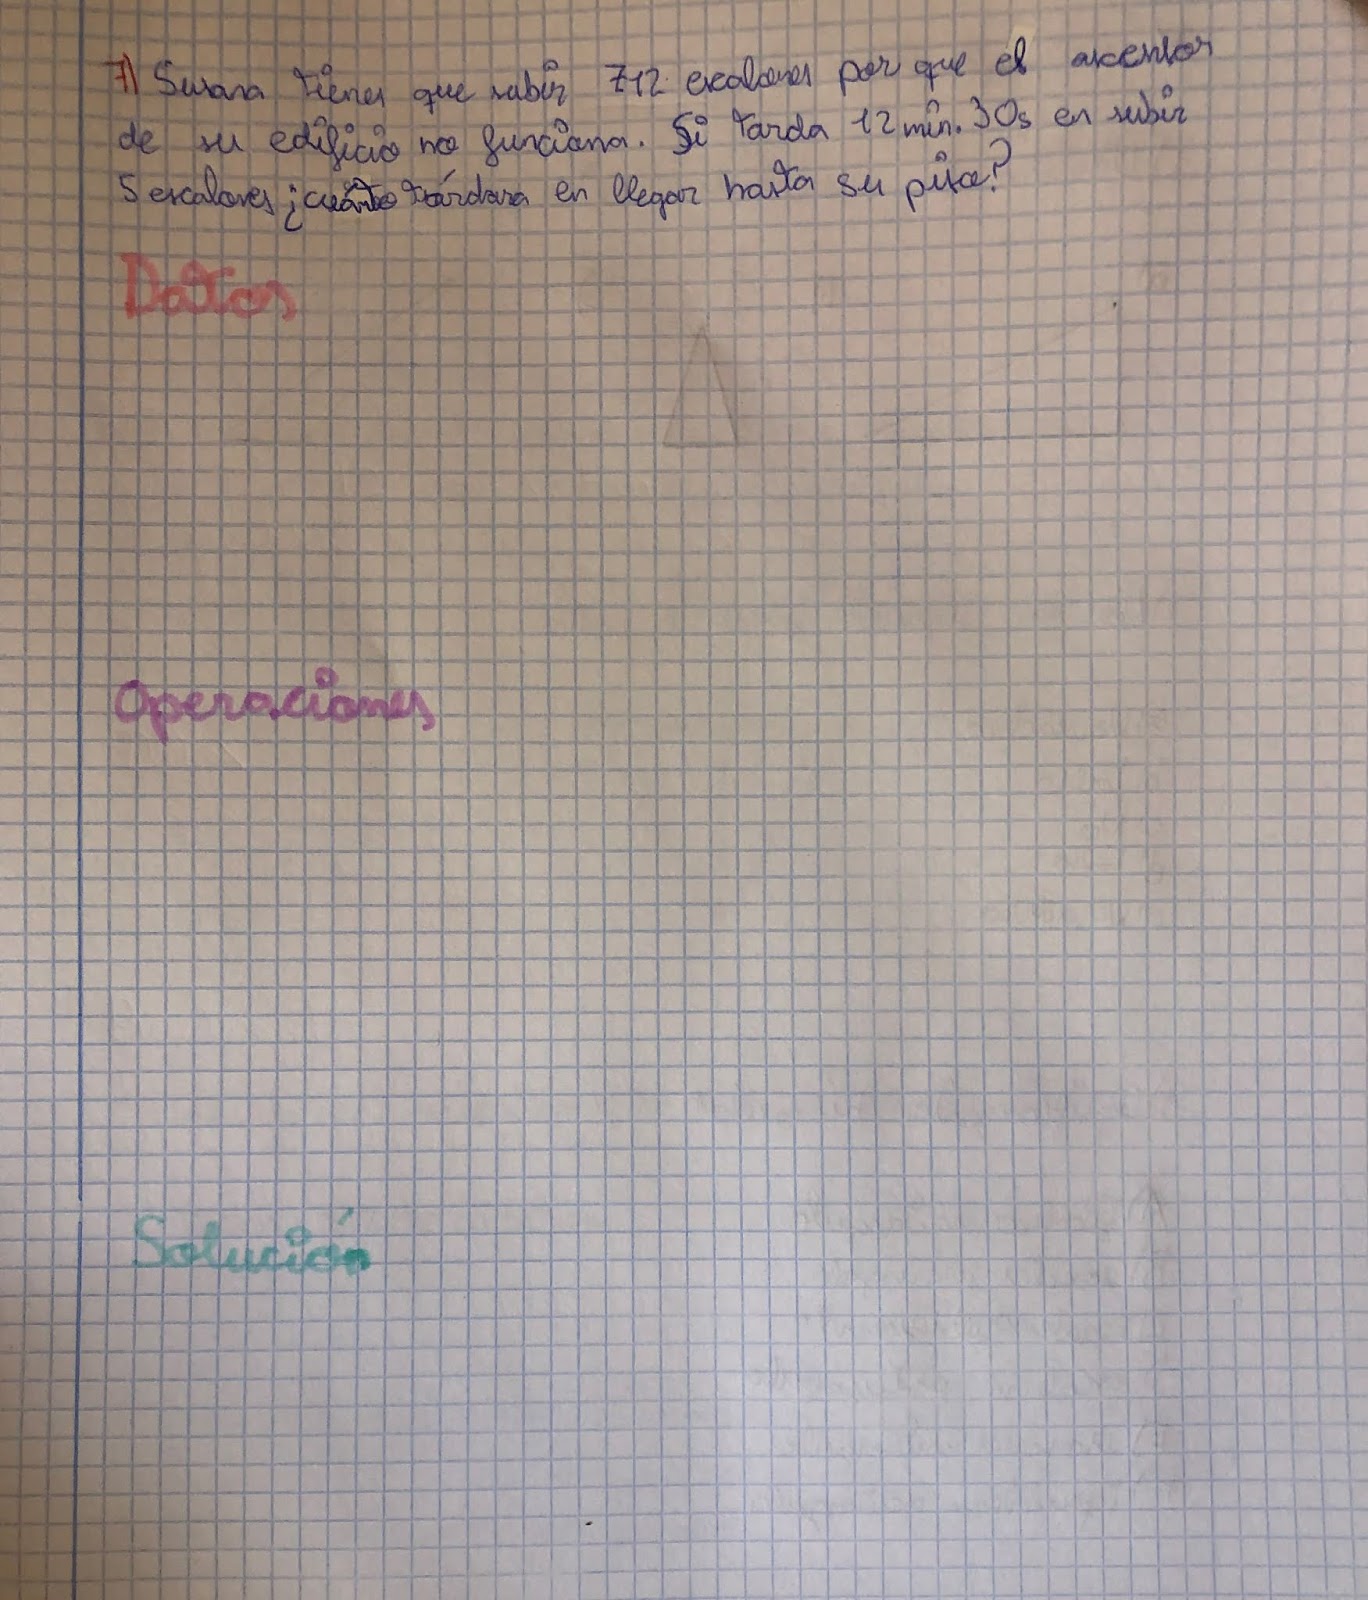 7) Susana tienes que subir 712 escalones por que el ascensor
de su edificio no funciona. Si tarda 12 min. 30s en subir
5 escalones ¿cuánto tárdara en llegar hasta su piso?
Datos
Operaciones
Solución